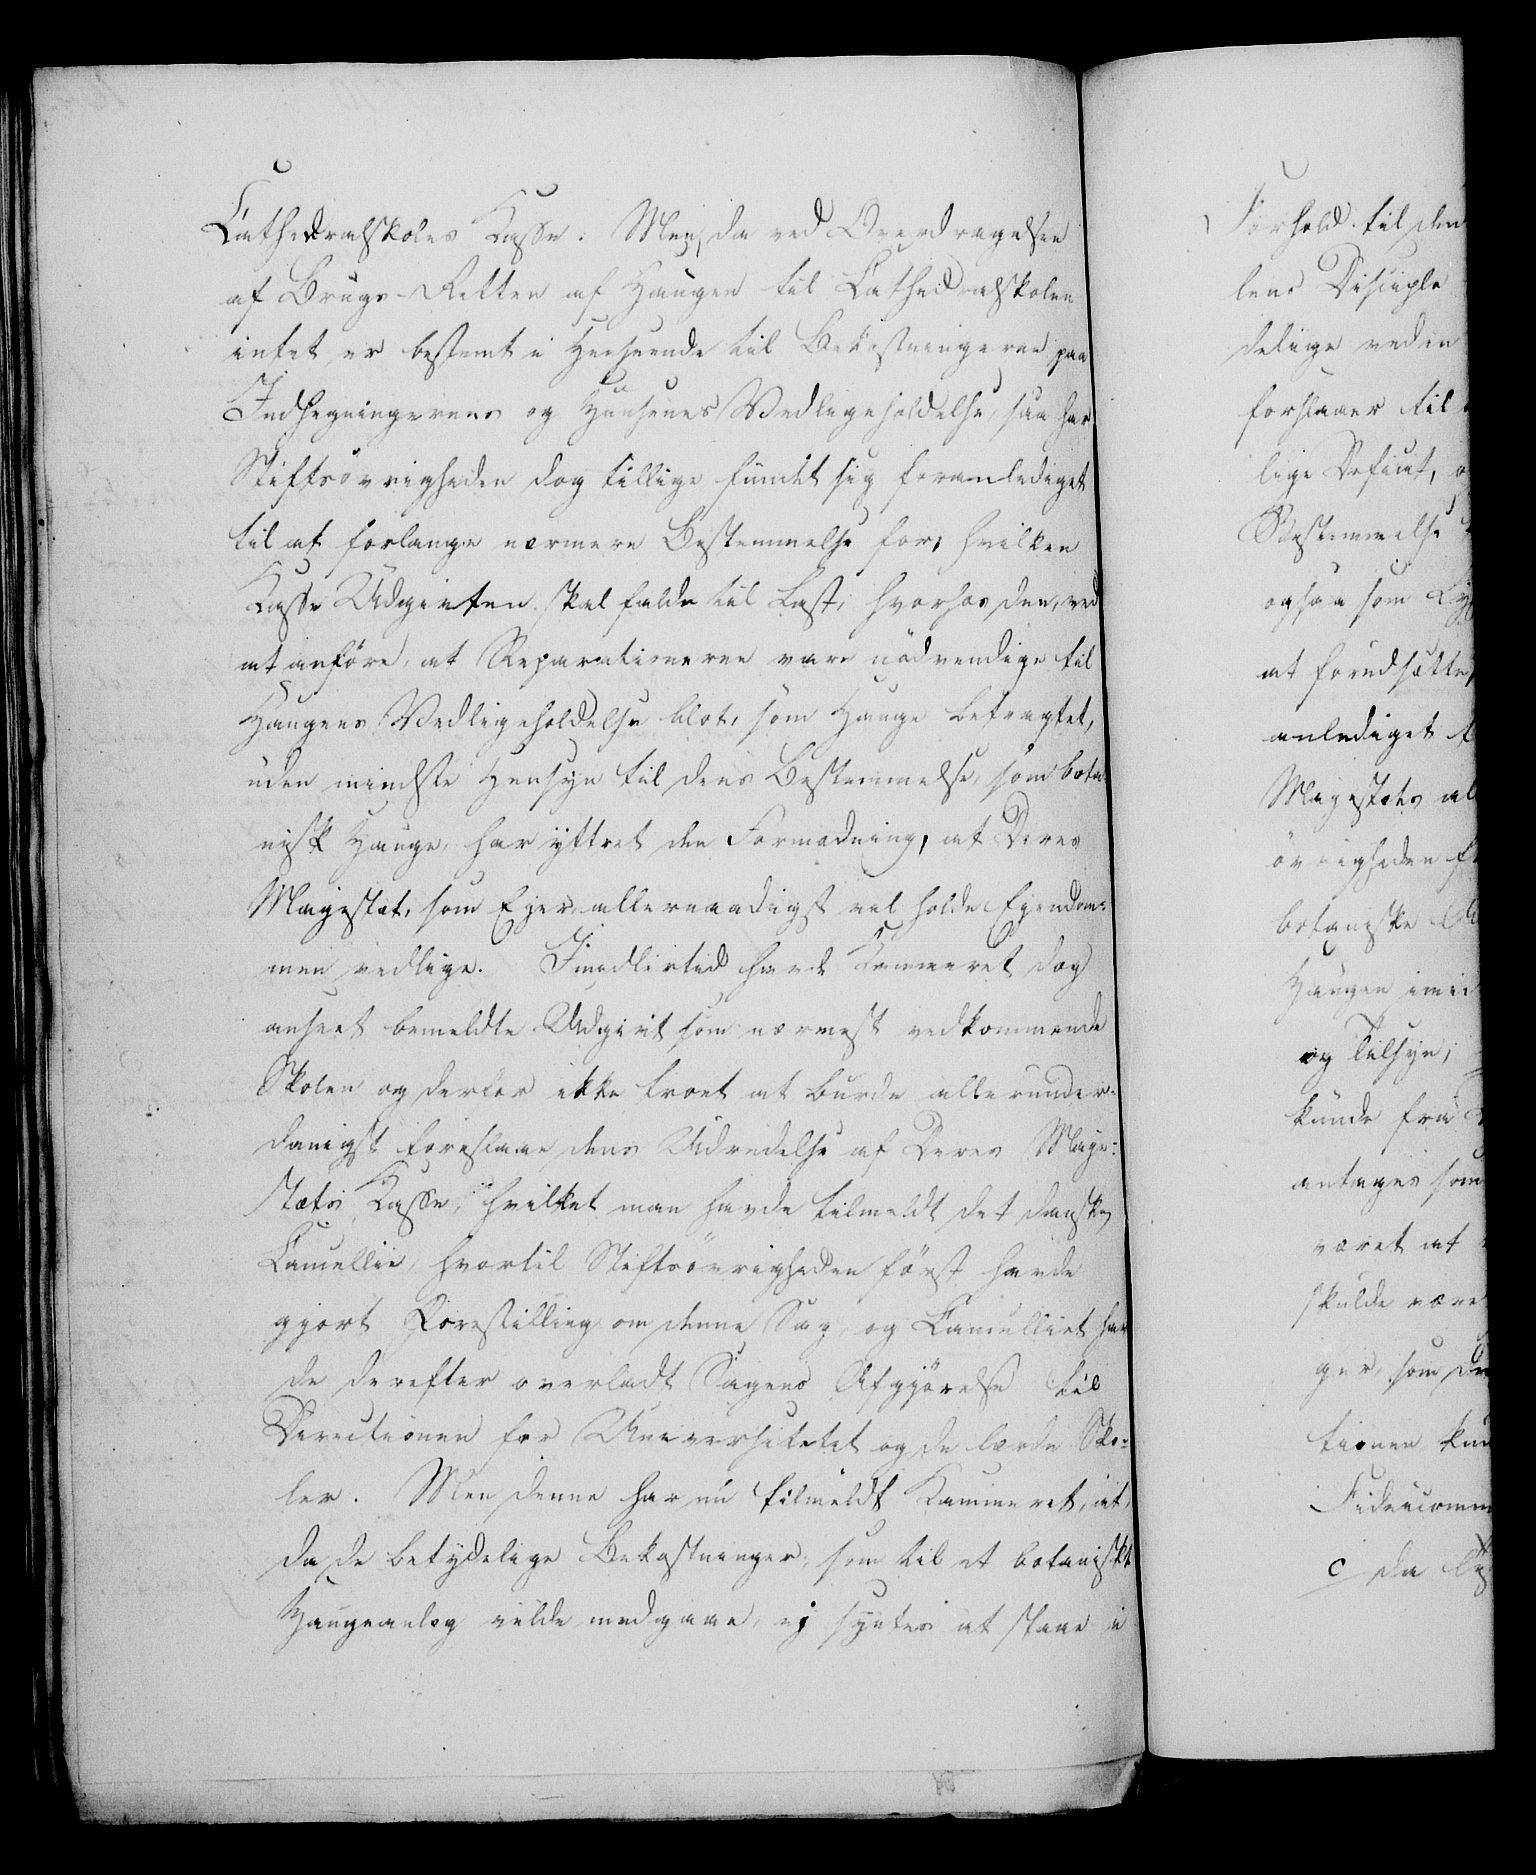 Cathedralskoles Kasse. Men, da ved Overdragelsen
af Brugs-Retten af Haugen til Cathedralskolen
intet er bestemt i Henseende til Bekostningerne paa
Indhegningernes og Husenes Vedligeholdelse, saa har
Stiftsøvrigheden dog tillige fundet sig foranlediget
til at forlange nærmere Bestemmelse for, hvilken
Kasse Udgivten skal falde til Last, hvorhos den, ved
at anføre, at Reparationerne vare nødvendige til
Haugens Vedligeholdelse blot, som Hauge betragtet,
uden mindste Hensyn til dens Bestemmelse, som bota
nisk Hauge, har yttret den Formodning, at Deres
Majestæt, som Ejer, allernaadigst vil holde Ejendom-
men vedlige. Imidlertid havde Kammeret dog
anseet bemeldte Udgivt som nærmest vedkommende
Skolen og derfor ikke troet at burde allerunder-
danigst foreslaae dens Udredelse af Deres Maje-
stæts Kasse, hvilket man havde tilmeldt det danske
Cancellie, hvortil Stiftsøvrigheden først havde
gjort Forestilling om denne Sag, og Cancelliet hav
de derefter overladt Sagens Afgjørelse til
Directionen for Universitetet og de lærde Sko-
ler. Men denne har nu tilmeldt Kammeret, at,
da de betydelige Bekostninger, som til et botanisk
Haugeanlæg vilde medgaae, ej syntes at staae i
Forhold til den
lens Disciple
delige ved en
forslaaer til
lige Deficit,
Bestemmelse
ogsaa som
at forudsætte,
anlediget
Majestæts al
øvrigheden
botaniske
Haugen imid
og Tilsyn,
kunde fra
antages som
været at
skulde være
ger, som de
tionen kun
Fideicomm
c da